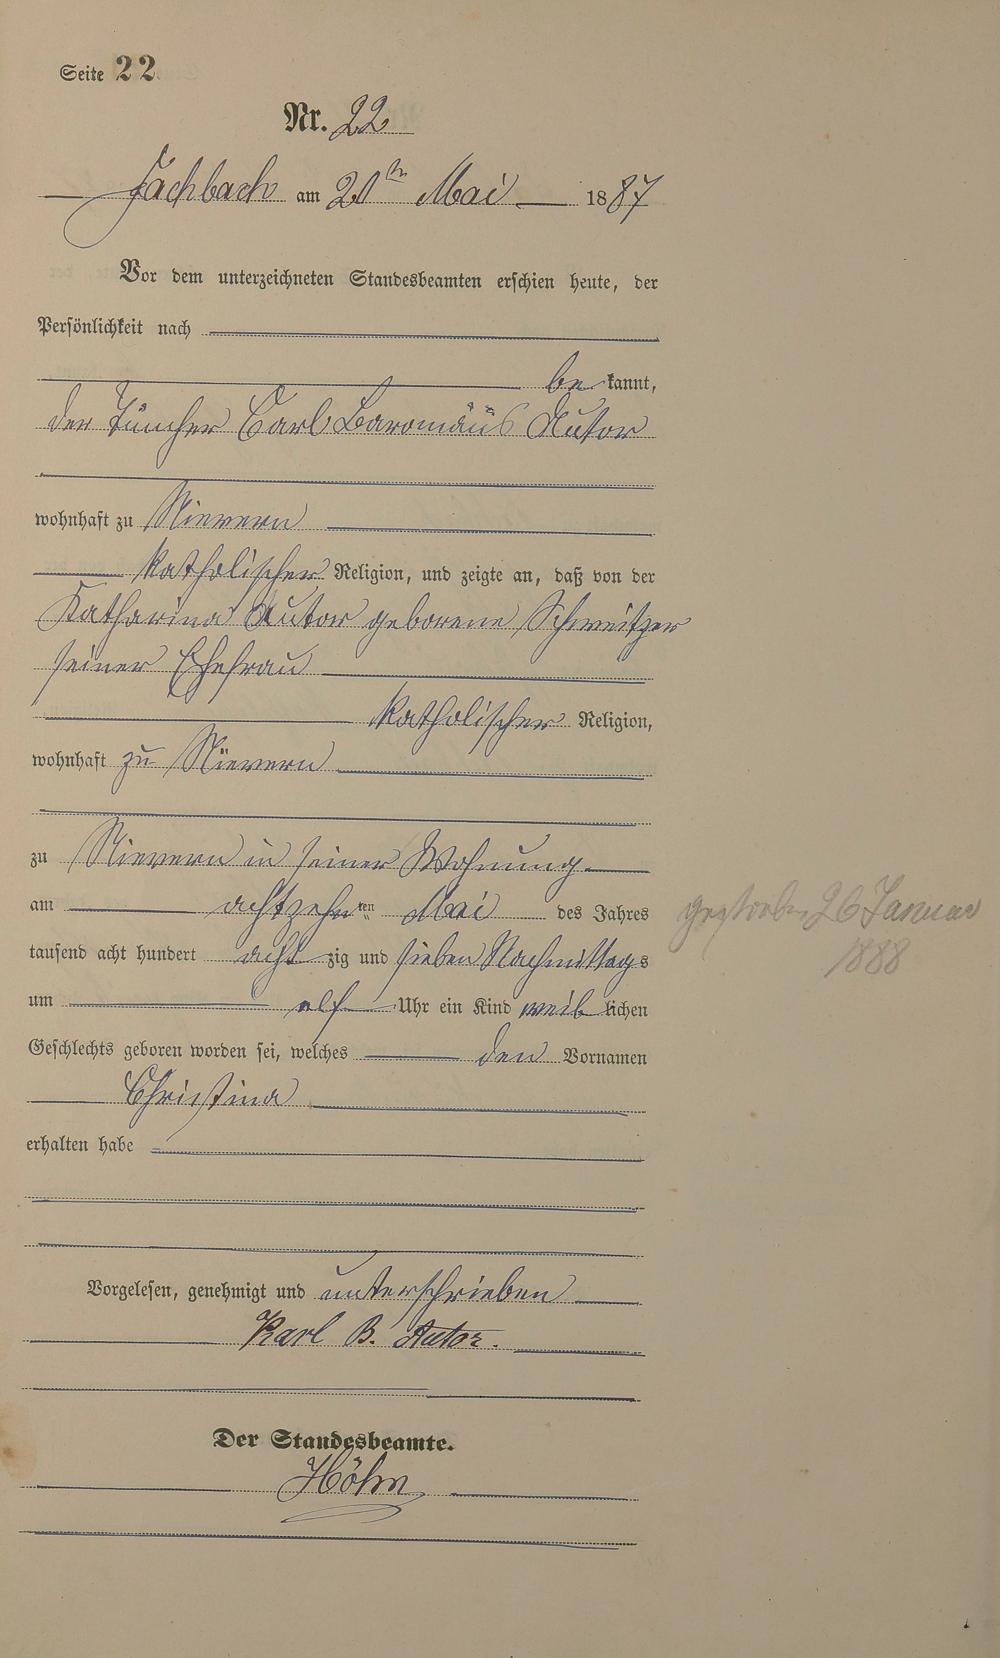 Seite 22
Nr. 22
Fachbach am 20ten Mai 1887
Vor dem unterzeichneten Standesbeamten erschien heute, der
Persönlichkeit nach
be kannt,
der Tüncher Carl Baromäüs Autor
wohnhaft zu Nievern
katholischer Religion, und zeigte an, daß von der
Katharina Autor geborene Schweitzer
seiner Ehefrau
katholischer Religion,
wohnhaft zu Nievern
zu Nievern in seiner Wohnung
am achtzehnten Mai des Jahres
tausend acht hundert acht zig und sieben Nachmittags
um elf Uhr ein Kind weib lichen
Geschlechts geboren worden sei, welches den Vornamen
Christina
erhalten habe
Vorgelesen, genehmigt und unterschrieben
Karl B. Autor.
Der Standesbeamte.
Höhn
gestorben 26 Januar
1888